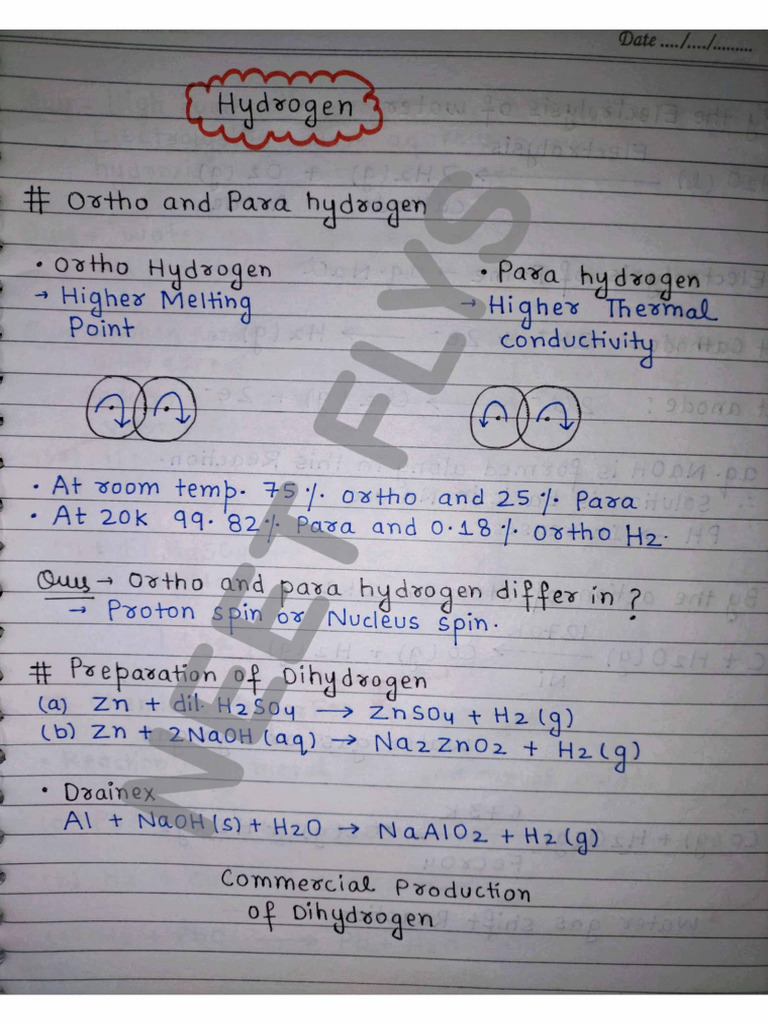 Date ..../..../.........
Hydrogen
# Ortho and Para hydrogen
• Ortho Hydrogen
→ Higher Melting
Point
• Para hydrogen
→ Higher Thermal
conductivity
• At room temp. 75% ortho and 25% Para
• At 20k 99.82% Para and 0.18% ortho H2.
Ques → Ortho and para hydrogen differ in?
→ Proton spin or Nucleus spin.
# Preparation of Dihydrogen
(a) Zn + dil. H2SO4 → ZnSO4 + H2 (g)
(b) Zn + 2NaOH (aq) → Na2ZnO2 + H2 (g)
• Drainex
Al + NaOH (s) + H2O → NaAlO2 + H2 (g)
Commercial Production
of Dihydrogen
NEET FLYS